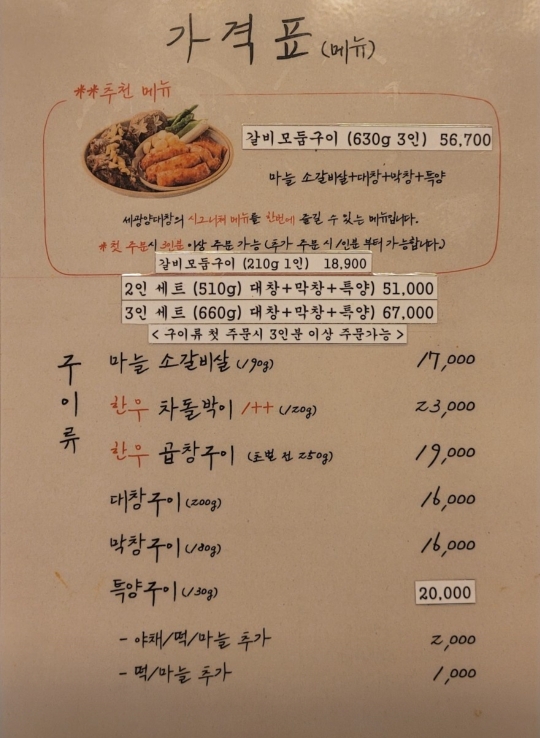 가격표 (메뉴)
**추천 메뉴
갈비모둠구이 (630g 3인) 56,700
마늘 소갈비살+대창+막창+특양
세광양대창의 시그니처 메뉴를 한번에 즐길 수 있는 메뉴입니다.
*첫 주문시 3인분 이상 주문 가능 (추가 주문 시 1인분 부터 가능합니다.)
갈비모둠구이 (210g 1인) 18,900
2인 세트 (510g) 대창+막창+특양) 51,000
3인 세트 (660g) 대창+막창+특양) 67,000
< 구이류 첫 주문시 3인분 이상 주문가능 >
구이류
마늘 소갈비살 (190g) 17,000
한우 차돌박이 1++ (120g) 23,000
한우 곱창구이 (초벌 전 250g) 19,000
대창구이 (200g) 16,000
막창구이 (180g) 16,000
특양구이 (130g) 20,000
- 야채/떡/마늘 추가 2,000
- 떡/마늘 추가 1,000